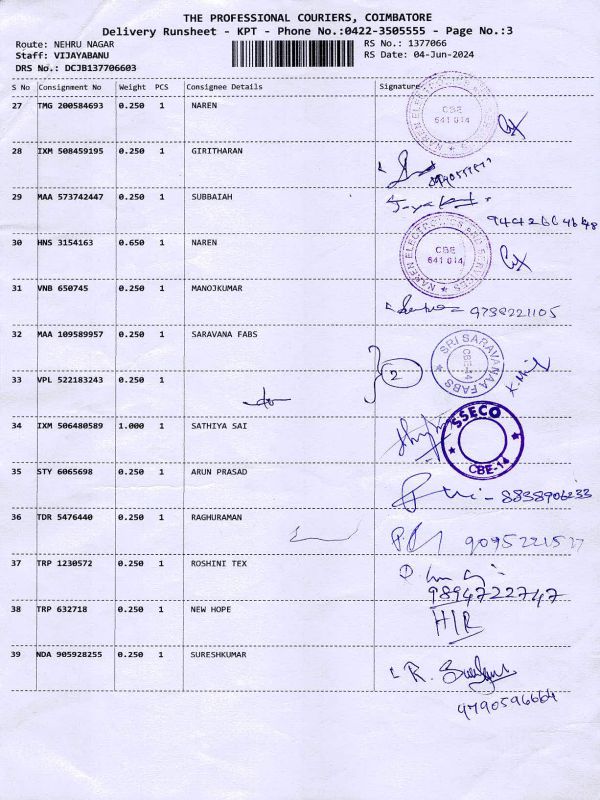 THE PROFESSIONAL COURIERS, COIMBATORE
Delivery Runsheet - KPT - Phone No.:0422-3505555 - Page No.:3
Route: NEHRU NAGAR RS No.: 1377066
Staff: VIJAYABANU RS Date: 04-Jun-2024
DRS No.: DCJB137706603
S No Consignment No Weight PCS Consignee Details Signature
27 TMG 200584693 0.250 1 NAREN
NAREN ELECTRONICS AND SERVICES CBE 641 014
28 IXM 508459195 0.250 1 GIRITHARAN
29 MAA 573742447 0.250 1 SUBBAIAH
30 HNS 3154163 0.650 1 NAREN
NAREN ELECTRONICS AND SERVICES CBE 641 014
31 VNB 650745 0.250 1 MANOJKUMAR
9739221105
32 MAA 109589957 0.250 1 SARAVANA FABS
2
SRI SARAVANAA FABS CBE-14
33 VPL 522183243 0.250 1
do
34 IXM 506480589 1.000 1 SATHIYA SAI
SSECO CBE-14
35 STY 6065698 0.250 1 ARUN PRASAD
36 TDR 5476440 0.250 1 RAGHURAMAN
37 TRP 1230572 0.250 1 ROSHINI TEX
9894722747
38 TRP 632718 0.250 1 NEW HOPE
H/R
39 NDA 905928255 0.250 1 SURESHKUMAR